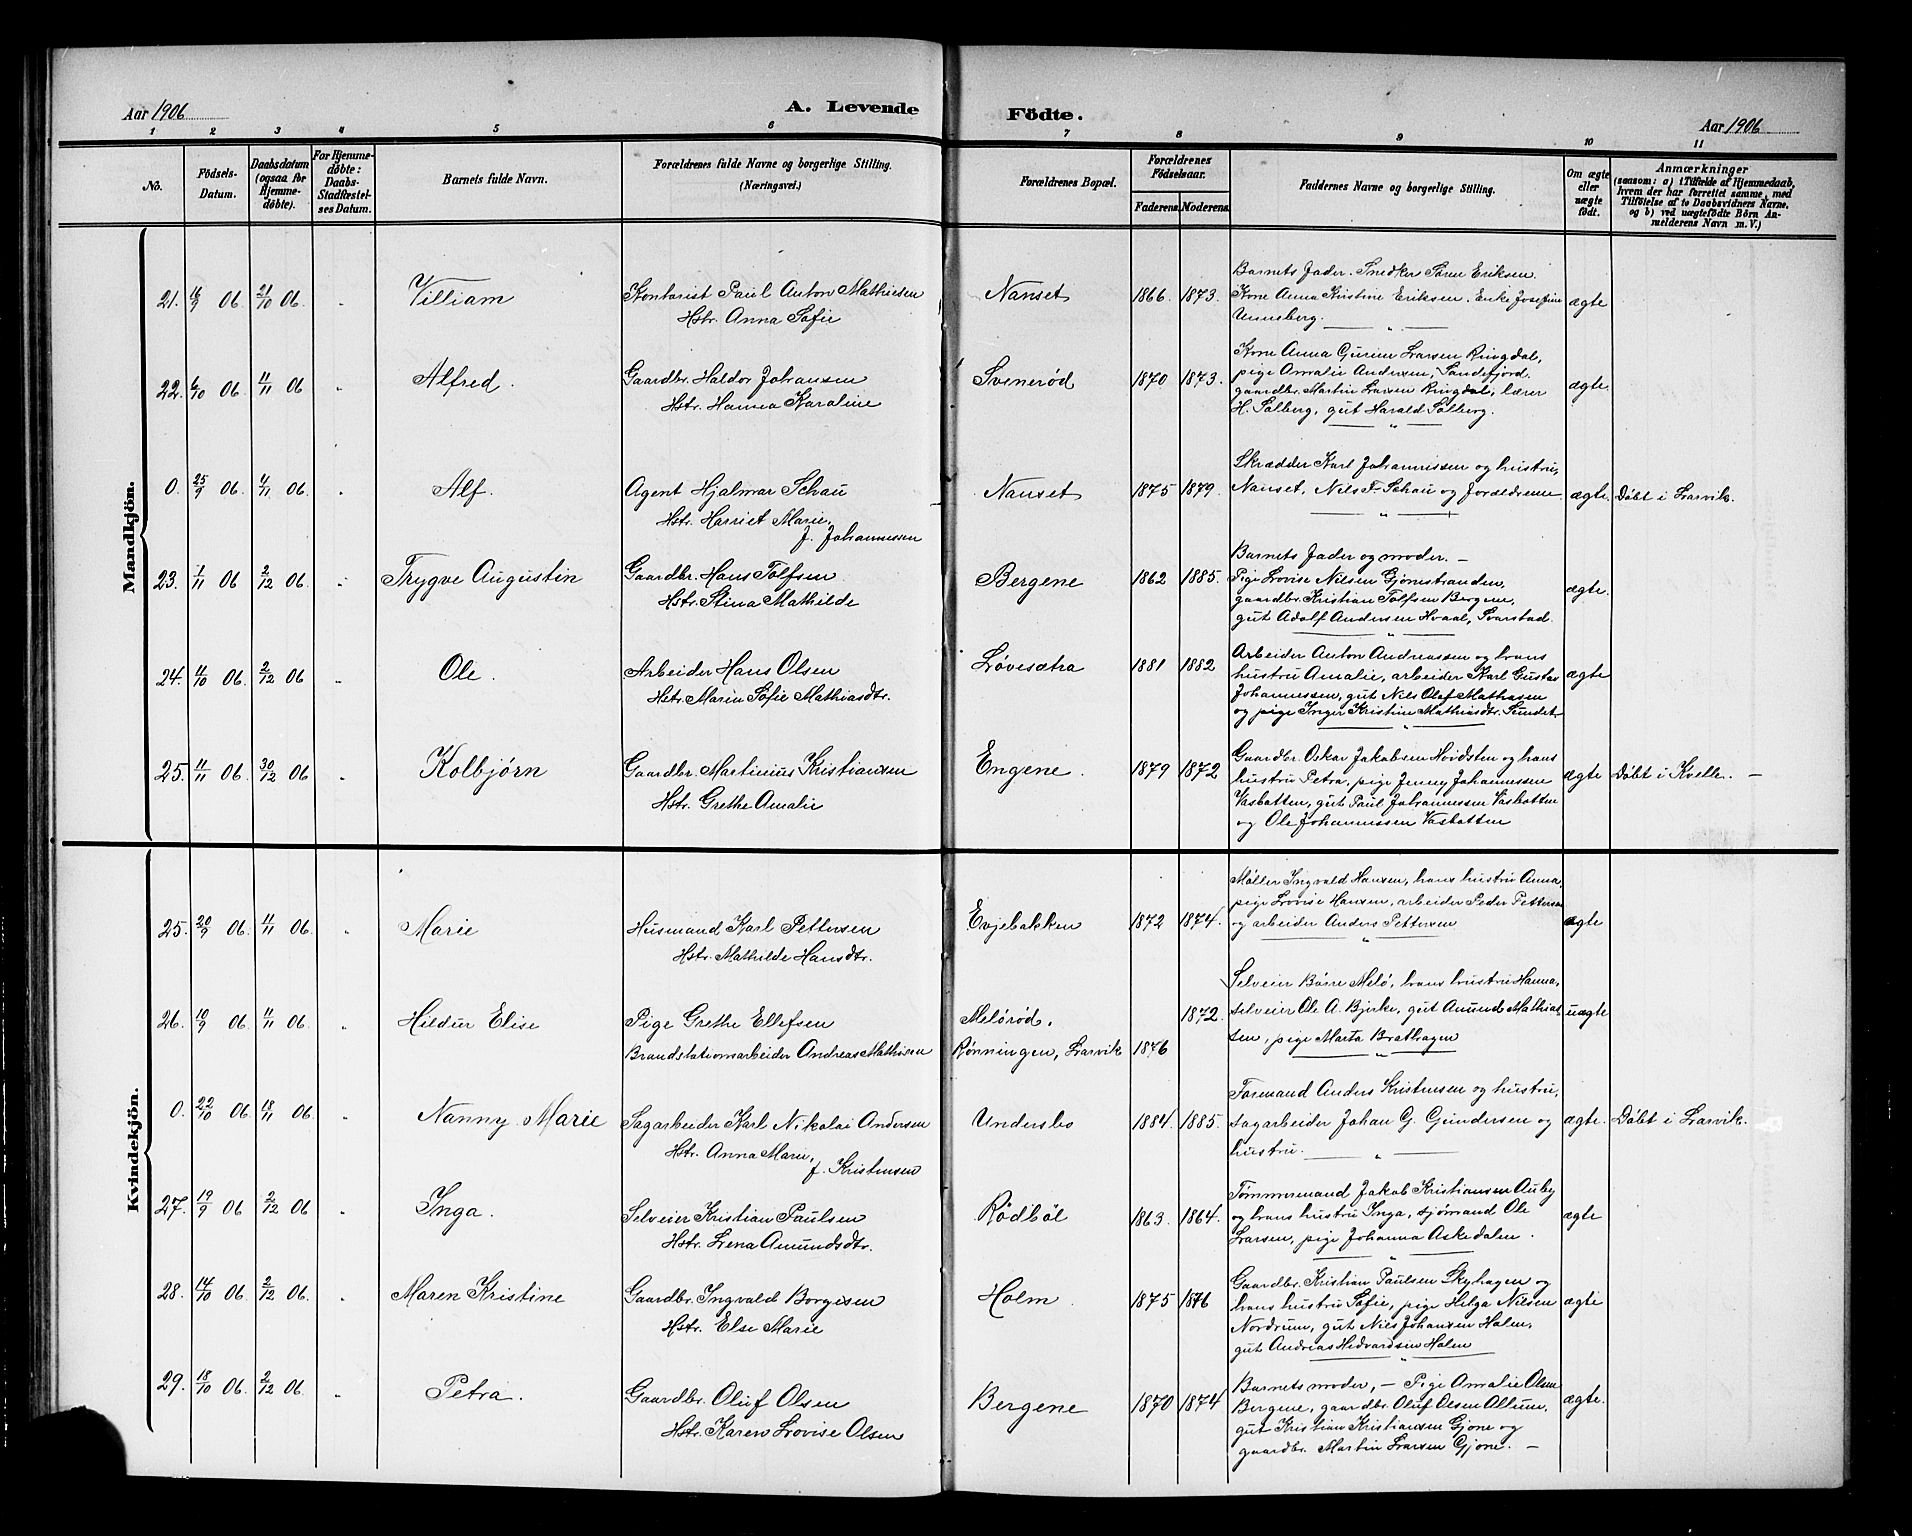 Aar 1906
A. Levende Födte.
Aar 1906
1 2 3 4 5 6 7 8 9 10 11
No.
Födsels-
Datum.
Daabsdatum
(ogsaa for
Hjemme-
döbte).
For Hjemme-
döbte:
Daabs-
Stadfæstel-
ses Datum.
Barnets fulde Navn.
Forældrenes fulde Navne og borgerlige Stilling.
(Næringsvei.)
Forældrenes Bopæl.
Forældrenes
Födselsaar.
Faderens Moderens
Faddernes Navne og borgerlige Stilling.
Om ægte
eller
uægte
födt.
Anmærkninger
(saasom: a) i Tilfælde af Hjemmedaab,
hvem der har forrettet samme, med
Tilföielse af to Daabsvidners Navne,
og b) ved uægtefödte Börn An-
melderens Navn m. V.)
Mandkjön.
21. 16/9 06 21/10 06. William
Kontorist Paul Anton Mathiesen
Hstr. Anna Sofie
Nanset 1866. 1873.
Barnets Fader. Snedker Søren Eriksen.
Kone Anna Kristine Eriksen. Enke Josefine
Unneberg.
ægte
22. 6/10 06 11/11 06 Alfred.
Gaardbr. Haldor Johansen
Hstr. Hanna Karoline
Svenerød 1870 1873.
Kone Anna Gurine Larsen Ringdal,
pige Amalie Andersen, Sandefjord.
gaardbr. Martin Larsen Ringdal, lærer
H. Solberg, gut Harald Solberg.
ægte
0. 25/9 06. 4/11 06. Alf.
Agent Hjalmar Schau
Hstr. Harriet Marie,
f. Johannessen
Nanset 1875 1879.
Skrædder Karl Johannissen og hustru,
Nanset, Nils F. Schau og forældrene
ægte. Døbt i Larvik.
23. 1/11 06 2/12 06. Trygve Augustin
Gaardbr. Hans Tolfsen.
Hstr. Stina Mathilde
Bergene 1862 1885.
Barnets fader og moder. —
Pige Lovise Nilsen Gjønestranden,
gaardbr. Kristian Tolfsen Bergene,
gut Adolf Andersen Hvaal, Svarstad.
ægte.
24. 11/10 06. 2/12 06 Ole.
Arbeider Hans Olsen
Hstr. Maren Sofie Mathiasdtr.
Løvesætra 1881 1882
Arbeider Anton Andreassen og hans
hustru Amalie, arbeider Karl Gustav
Johannessen, gut Nils Olaf Mathasen
og pige Inger Kristine Mathiasdtr. Sundet
ægte
25. 11/11 06. 30/12 06 Kolbjørn
Gaardbr. Martinius Kristiansen
Hstr. Grethe Amalie
Engene. 1879 1872
Gaardbr. Oskar Jakobsen Hovdsten og hans
hustru Petra, pige Jenny Johannessen
Vasbotten, gut Paul Johannessen Vasbotten
og Ole Johannessen Vasbotten
ægte Døbt i Kvelle. —
Kvindekjön.
25. 20/9 06. 11/11 06. Marie
Husmand Karl Pettersen
Hstr. Mathilde Hansdtr.
Evjebakken 1872 1874.
Møller Ingvald Hansen, hans hustru Anna,
pige Lovise Hansen, arbeider Peder Pettersen
og arbeider Anders Pettersen
ægte
26. 10/9 06 11/11 06. Hildur Elise
Pige Grethe Ellefsen
Brandstationsarbeider Andreas Mathisen
Melørød. 1872.
Rønningen, Larvik 1846
Selveier Børre Melø, hans hustru Hanna,
selveier Ole A. Bjerke, gut Amund Mathias-
sen, pige Marta Brathagen
uægte
0. 22/10 06. 18/11 06. Nanny Marie
Sagarbeider Karl Nikolai Andersen
Hstr. Anna Marie,
f. Kristensen
Undersbo 1884. 1885.
Formand Anders Kristensen og hustru,
sagarbeider Johan G. Gundersen og
hustru.
ægte. Døbt i Larvik.
27. 19/9 06 2/12 06 Inga.
Selveier Kristian Paulsen
Hstr. Lena Amundsdtr.
Rødbøl 1863 1864.
Tømmermand Jakob Kristiansen Auby
og hans hustru Inga, sjømand Ole
Larsen, pige Johanna Askedalen.
ægte
28. 14/10 06 2/12 06. Maren Kristine
Gaardbr. Ingvald Borgesen
Hstr. Else Marie
Holm 1875 1876
Gaardbr. Kristian Paulsen Skyhagen og
hans hustru Sofie, pige Helga Nilsen
Nordrum, gut Nils Johansen Holm,
gut Andreas Hedvardsen Holm
ægte
29. 18/10 06. 2/12 06. Petra.
Gaardbr. Oluf Olsen
Hstr. Karen Lovise Olsen
Bergene 1870 1874
Barnets moder, — Pige Amalie Olsen
Bergene, gaardbr. Oluf Olsen Allum,
gut Kristian Kristiansen Gjone og
gaardbr. Martin Larsen Gjone. —
ægte.